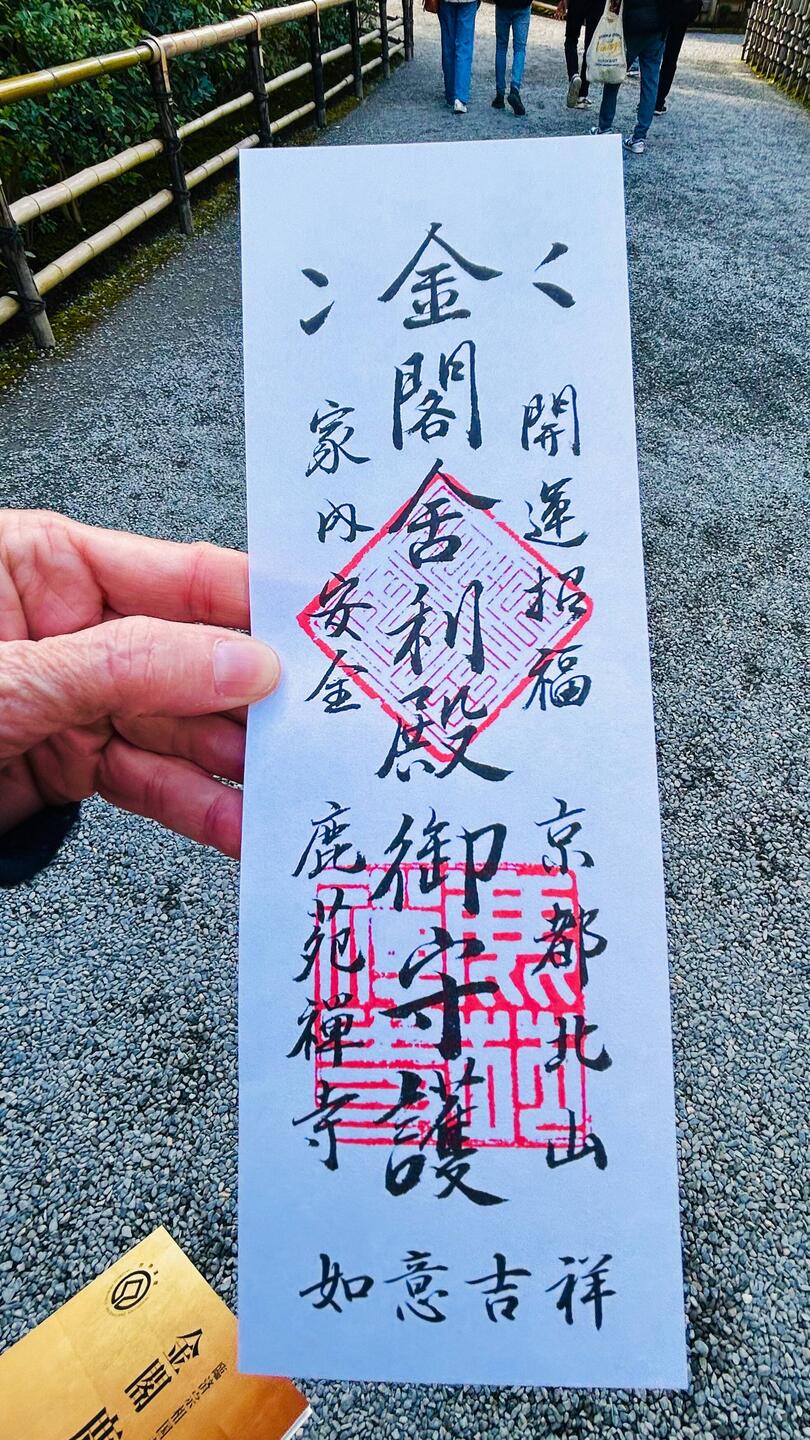 開運招福
京都北山
金閣舎利殿御守護
家内安全
鹿苑禪寺
如意吉祥
臨済宗相国
金閣